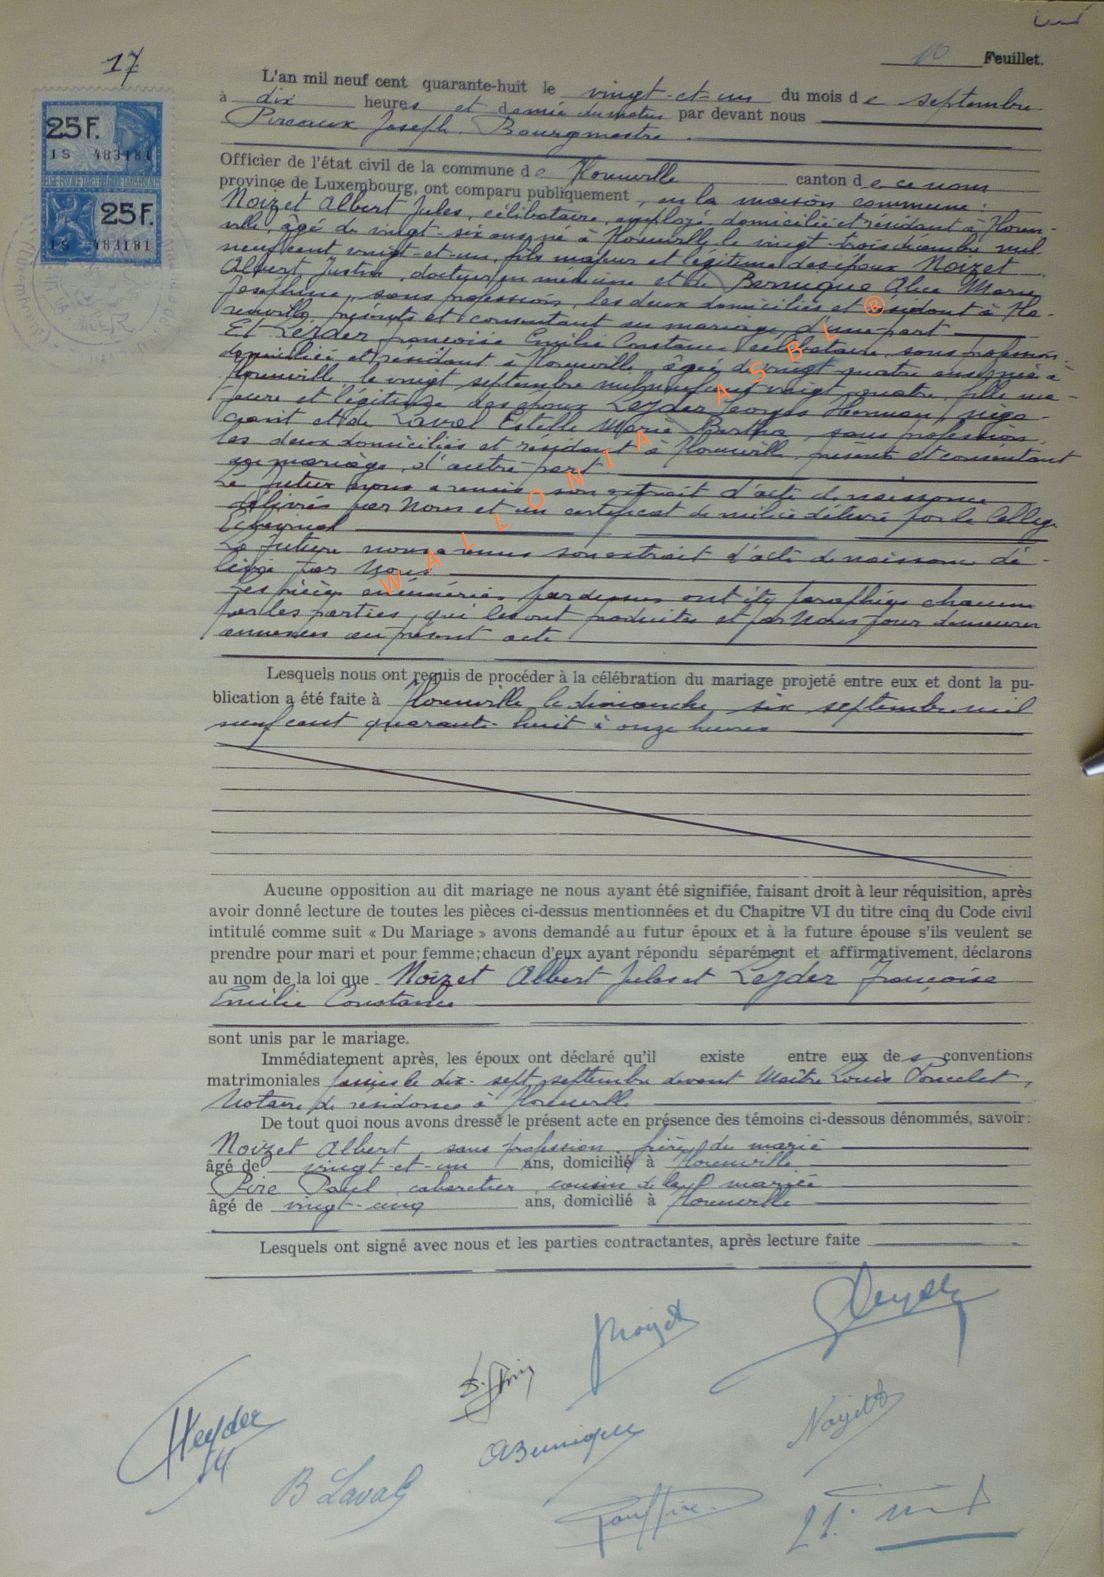 17
10 Feuillet.
25 F.
1S 483181
25 F.
1S 483181
L'an mil neuf cent quarante-huit le vingt-et-un du mois de septembre
à dix heures et demie du matin par devant nous
Pireaux Joseph, Bourgmestre
Officier de l'état civil de la commune de Houville canton de ce nom
province de Luxembourg, ont comparu publiquement, en la maison commune:
Noizet Albert Jules, célibataire, employé, domicilié et résidant à Hou-
ville, âgé de vingt-six ans, né à Houville le vingt-trois décembre mil
neuf cent vingt-et-un, fils majeur et légitime des époux Noizet
Albert, Justin, docteur en médecine et de Bernique Alice Marie
Joséphine, sans profession, les deux domiciliés et résidant à
présents et consentant au mariage, d'une part
Et Leyder Françoise Emilie Constance célibataire, sans profession,
domiciliée et résidant à Houville, âgée de vingt quatre ans, née à
Houville, le vingt septembre mil neuf cent vingt quatre, fille ma-
jeure et légitime des époux Leyder Georges Herman, négo-
ciant et de Laval Estelle Marie Bertha, sans profession
les deux domiciliés et résidant à Houville, présents et consentant
au mariage, d'autre part
Le Futur nous a remis son extrait d'acte de naissance
délivrés par Nous et un certificat de milice délivré par le Collège
Echevinal
La Future nous a remis son extrait d'acte de naissance dé-
livré par Nous
Les pièces énumérées par dessus ont été paraphées chacune
par les parties, qui les ont produites et par Nous pour demeurer
annexées au présent acte
WALLONIA ASBL ®
Lesquels nous ont requis de procéder à la célébration du mariage projeté entre eux et dont la pu-
blication a été faite à Houville le dimanche, six septembre mil
neuf cent quarante-huit à onze heures
Aucune opposition au dit mariage ne nous ayant été signifiée, faisant droit à leur réquisition, après
avoir donné lecture de toutes les pièces ci-dessus mentionnées et du Chapitre VI du titre cinq du Code civil
intitulé comme suit « Du Mariage » avons demandé au futur époux et à la future épouse s'ils veulent se
prendre pour mari et pour femme; chacun d'eux ayant répondu séparément et affirmativement, déclarons
au nom de la loi que Noizet Albert Jules et Leyder Françoise
Emilie Constance
sont unis par le mariage.
Immédiatement après, les époux ont déclaré qu'il existe entre eux des conventions
matrimoniales passées le dix-sept septembre devant Maître Louis Poncelet,
Notaire de résidence à Houville
De tout quoi nous avons dressé le présent acte en présence des témoins ci-dessous dénommés, savoir:
Noizet Albert, sans profession, frère du marié
âgé de vingt-et-un ans, domicilié à Houville
Pire Paul, cabaretier, cousin de la mariée
âgé de vingt-cinq ans, domicilié à Houville
Lesquels ont signé avec nous et les parties contractantes, après lecture faite
Noizet
Leyder
ABernique
Noizet
B Laval
Paul Pire